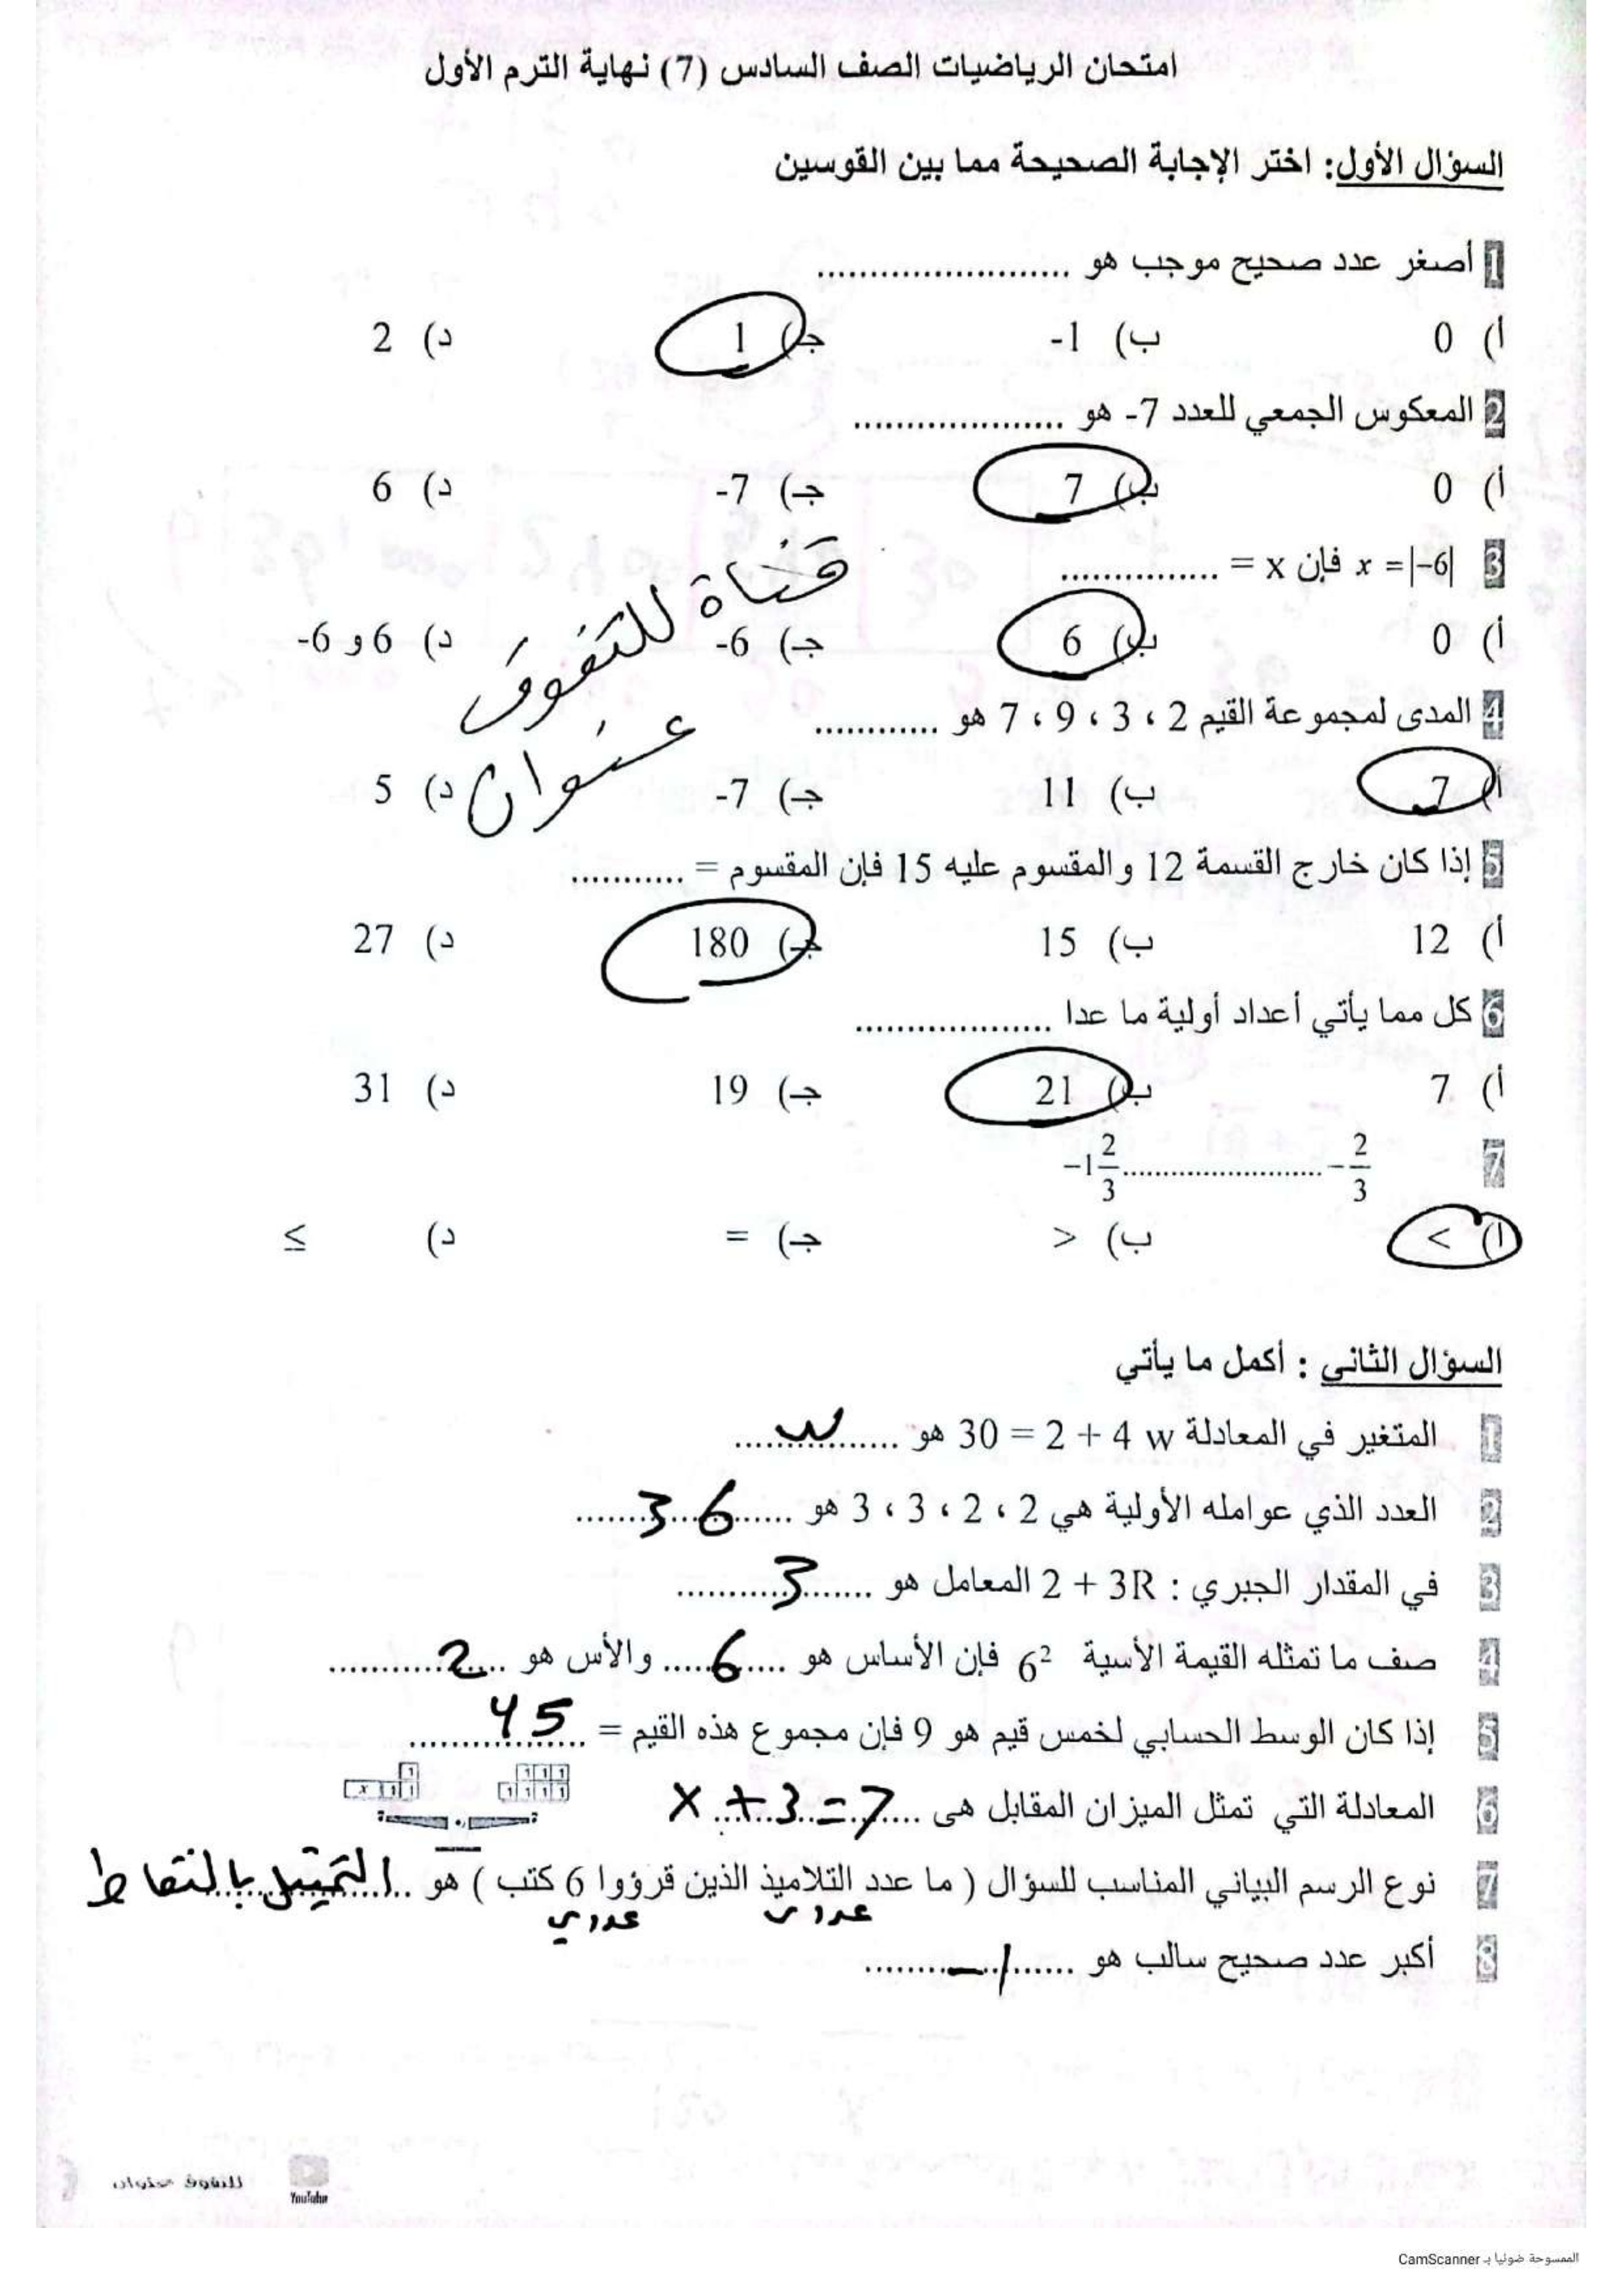 امتحان الرياضيات الصف السادس (7) نهاية الترم الأول
السؤال الأول: اختر الإجابة الصحيحة مما بين القوسين
1 أصغر عدد صحيح موجب هو ........................
أ) 0 ب) 1- جـ) 1 د) 2
2 المعكوس الجمعي للعدد 7- هو ....................
أ) 0 ب) 7 جـ) 7- د) 6
3 x =|−6| فإن x = ...............
أ) 0 ب) 6 جـ) 6- د) 6 و 6-
قناة للتفوق
عنوان
4 المدى لمجموعة القيم 2 ، 3 ، 9 ، 7 هو ............
أ) 7 ب) 11 جـ) 7- د) 5
5 إذا كان خارج القسمة 12 والمقسوم عليه 15 فإن المقسوم = ...........
أ) 12 ب) 15 جـ) 180 د) 27
6 كل مما يأتي أعداد أولية ما عدا ...................
أ) 7 ب) 21 جـ) 19 د) 31
7 −1 2/3 ........................ − 2/3
أ) < ب) > جـ) = د) ≤
السؤال الثاني : أكمل ما يأتي
1 المتغير في المعادلة 30 = 2 + 4 w هو ....w....
2 العدد الذي عوامله الأولية هي 2 ، 2 ، 3 ، 3 هو ....36....
3 في المقدار الجبري : 2 + 3R المعامل هو ....3....
4 صف ما تمثله القيمة الأسية 6² فإن الأساس هو ....6.... والأس هو ....2....
5 إذا كان الوسط الحسابي لخمس قيم هو 9 فإن مجموع هذه القيم = ....45....
6 المعادلة التي تمثل الميزان المقابل هى x + 3 = 7
1
x 1 1 1
1 1 1
1 1 1 1
7 نوع الرسم البياني المناسب للسؤال ( ما عدد التلاميذ الذين قرؤوا 6 كتب ) هو التمثيل بالنقاط
عددى عددي
8 أكبر عدد صحيح سالب هو ....-1....
YouTube للتفوق عنوان
الممسوحة ضوئيا بـ CamScanner